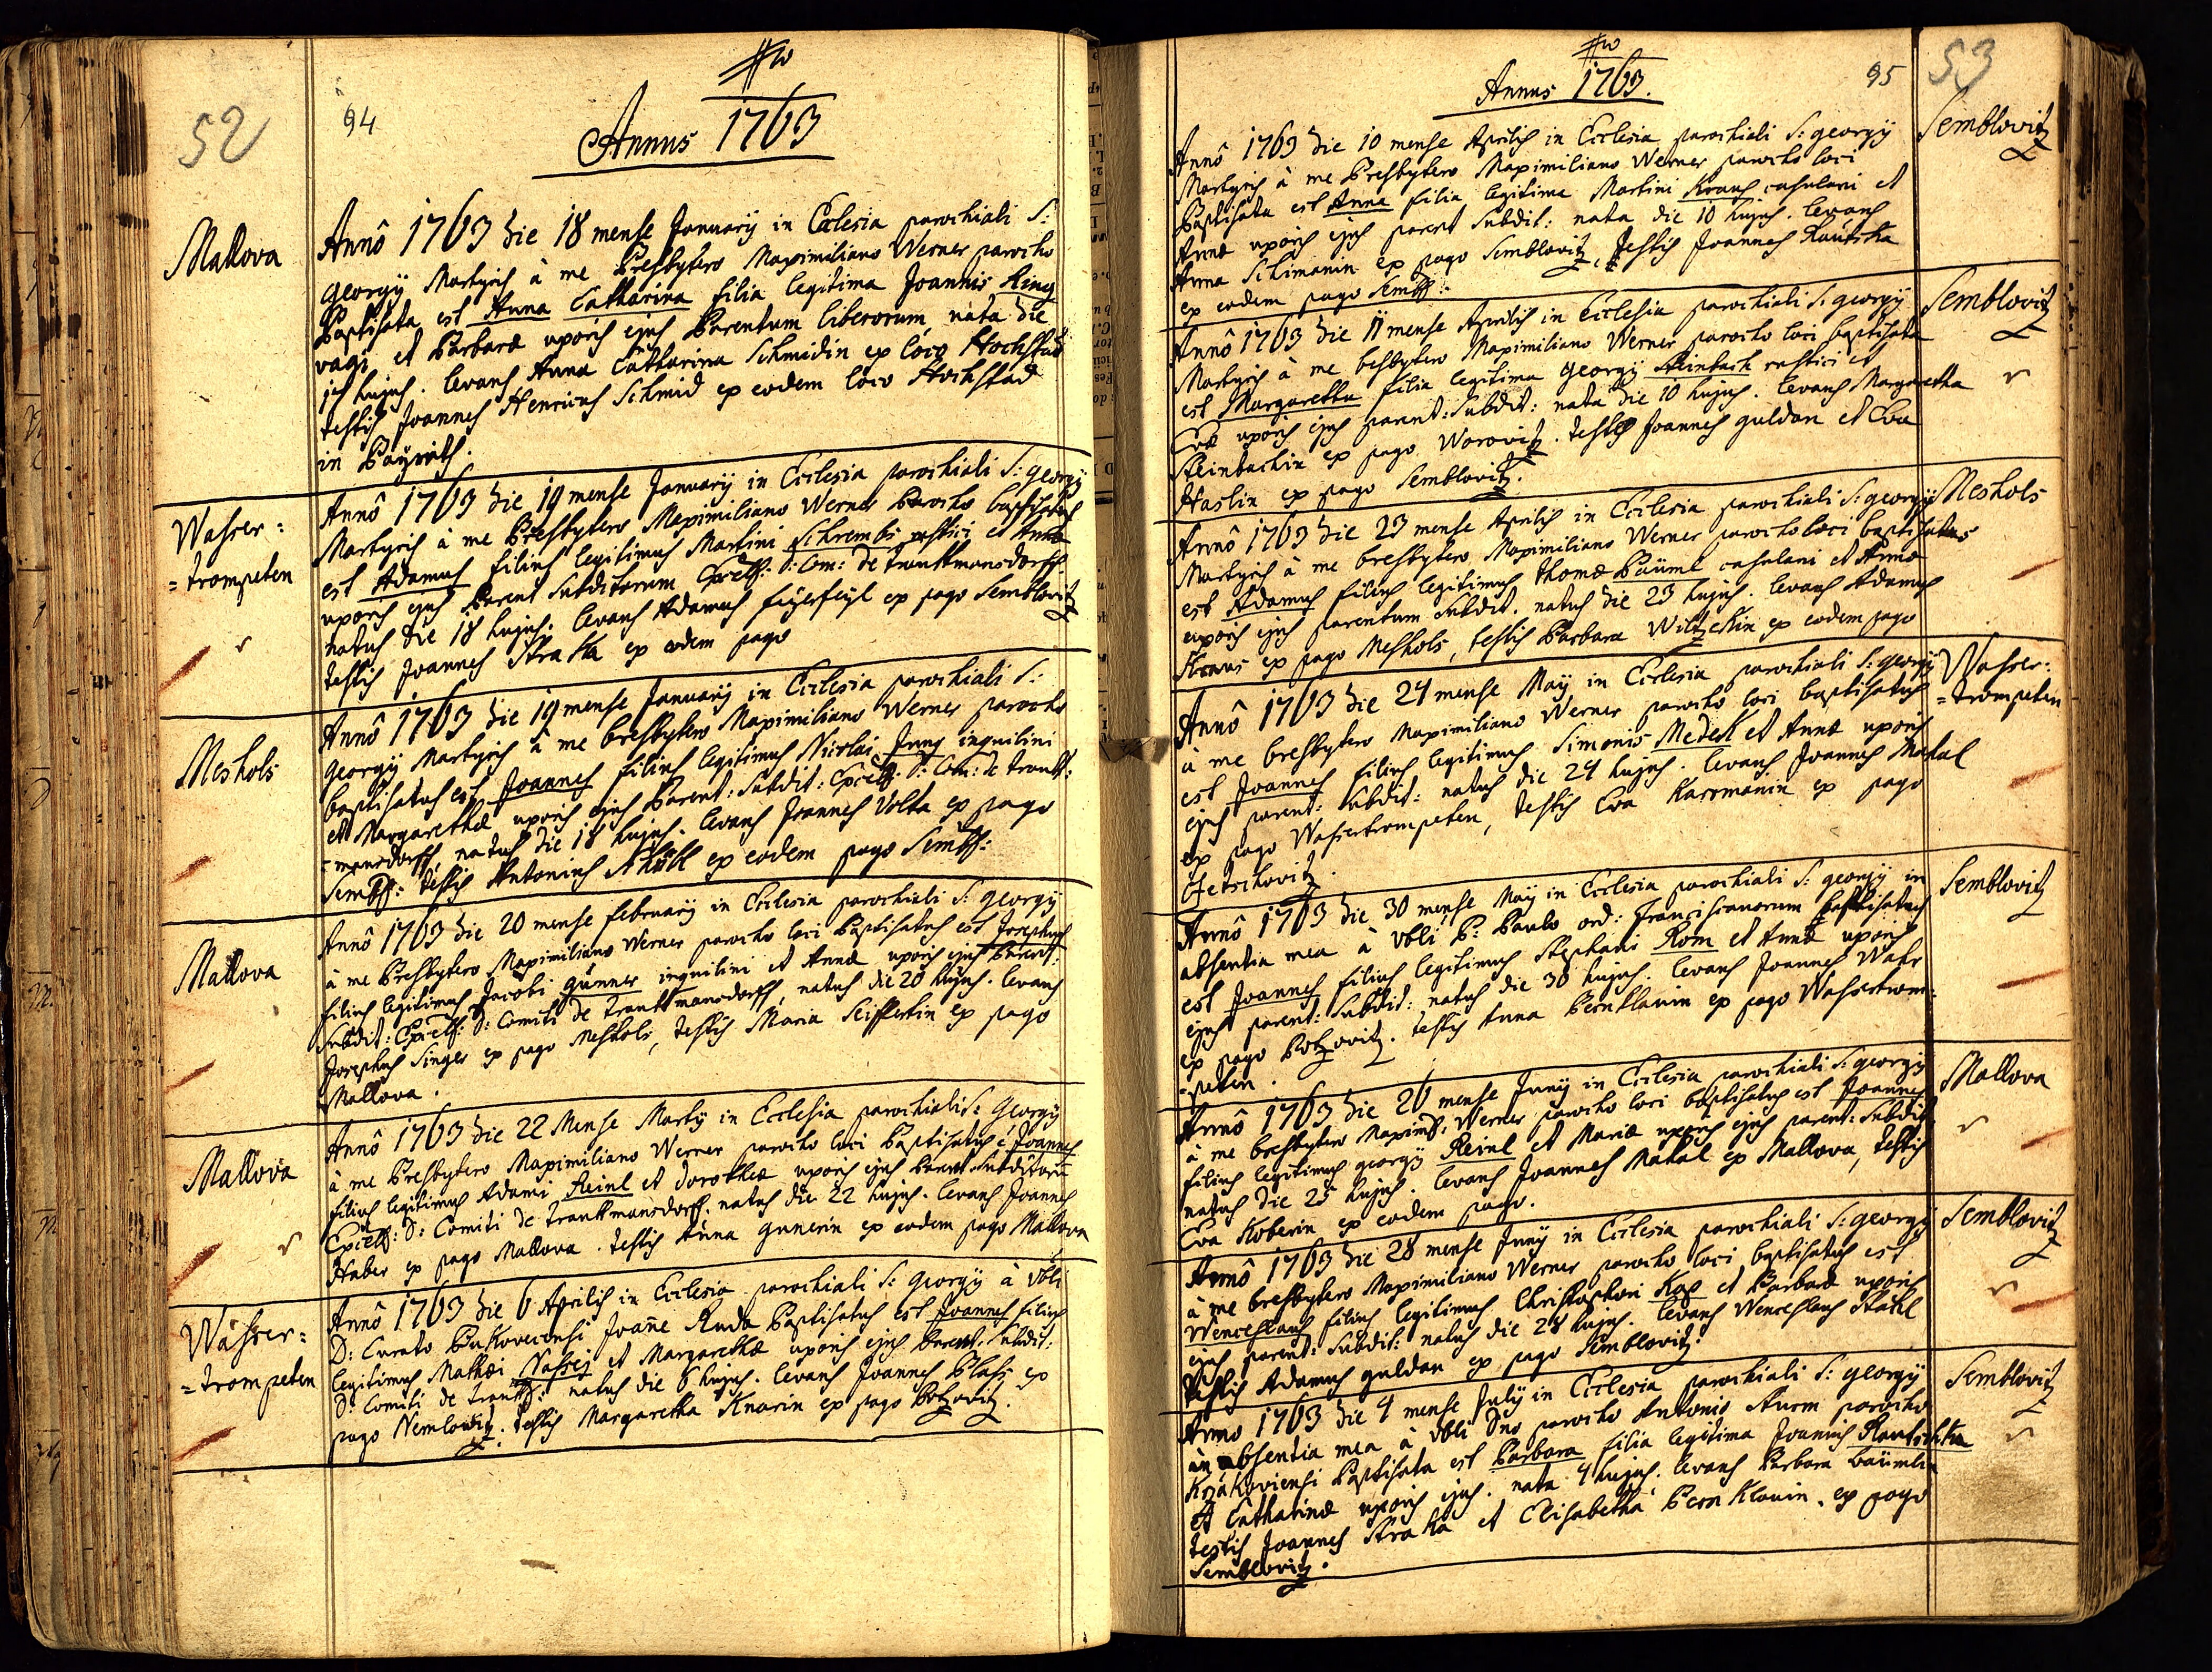 52
94
Annus 1763
Mallova
Annô 1763 die 18 mense Januarÿ in Ecclesia parochiali S:
Georgÿ Martyris à me Presbytero Maximiliano Werner parocho
Baptisata est Anna Catharina filia legitima Joannis King
vagi et Barbaræ uxoris ejus Parentum liberorum, nata die
hujus. levans Anna Catharina Schmidin ex loco Hochstad
testis Joannes Henricus Schmid ex eodem loco Hochstad
in
Wasser:
=trompeten
Annô 1763 die 19 mense Januarÿ in Ecclesia parochiali S: Georgÿ
Martyris à me Presbytero Maximiliano Werner Parocho baptisatus
est Adamus filius legitimus Martini Schrembs rustici et Annæ
uxoris ejus Parent Subditorum Excell: D: Com: de Trauttmansdorff
natus die 18 hujus. levans Adamus feÿerfeÿl ex pago Semblovitz
testis Joannes Straka ex eodem pago
Meshols
Annô 1763 die 19 mense Januarÿ in Ecclesia parochiali S:
Georgÿ Martyris à me Presbytero Maximiliano Werner parocho
baptisatus est Joannes filius legitimus Nicolai Jung inquilini
et Margarethæ uxoris ejus Parent: Subdit: Excell. D: Com: de Trautt:
=mansdorff, natus die 18 hujus. levans Joannes Volta ex pago
Sembl: testis Antonius ex eodem pago Sembl:
Mallova
Annô 1763 die 20 mense februarÿ in Ecclesia parochiali S: Georgÿ
à me Presbytero Maximiliano Werner parocho loci Baptisatus est Josephus
filius legitimus Jacobi Gunner inquilini et Annæ uxoris ejus Parent:
Subdit: Excell: D: Comiti de Trauttmansdorff, natus die 20 hujus. levans
Josephus Singer ex pago Meshols, testis Maria Seiffertin ex pago
Mallova.
Mallova
Annô 1763 die 22 Mense Martÿ in Ecclesia parochiali S: Georgÿ
à me Presbytero Maximiliano Werner parocho loci Baptisatus e Joannes
filius legitimus Adami Reinl et Dorotheæ uxoris ejus Parent Subditorũ
Excell: D: Comiti de Trauttmansdorff. natus die 22 hujus. levans Joannes
Huber ex pago Mallova. testis Anna Gunerin ex eodem pago Mallova
Wasser:
=trompeten
Annô 1763 die 6 Aprilis in Ecclesia parochiali S: Georgÿ à Vbli
D: Curato Joañe Ruda Baptisatus est Joannes filius
legitimus Mathæi et Margarethæ uxoris ejus Parent: Subdit:
D: Comiti de Trautt: natus die 6 hujus. levans Joannes Blass ex
pago Nemlowitz. testis Margaretha Knarin ex pago Botzovitz.
53
95
Annus 1763.
Semblovitz
Annô 1763 die 10 mense Aprilis in Ecclesia parochiali S: Georgÿ
Martyris à me Presbytero Maximiliano Werner parocho loci
Baptisata est Anna filia legitima Martini Kraus casulani et
Annæ uxoris ejus parent Subdit: nata die 10 hujus. levans
Anna Schimanin ex pago Semblovitz, testis Joannes
ex eodem pago Sembl:
Semblovitz
Annô 1763 die 11 mense Aprilis in Ecclesia parochiali S: Georgÿ
Martyris à me Presbytero Maximiliano Werner parocho loci baptisata
est Margaretha filia legitima Georgÿ Steinbach rustici et
Evæ uxoris ejus parent: Subdit: nata die 10 hujus. levans Margaretha
Steinbachin ex pago Worovitz. testes Joannes Guldan et Eva
Haslin ex pago Semblovitz.
Meshols
Annô 1763 die 23 mense Aprilis in Ecclesia parochiali S: Georgÿ
Martyris à me Presbytero Maximiliano Werner parocho loci baptisatus
est Adamus filius legitimus Thomæ Bäuml casulani et Annæ
uxoris ejus parentum Subdit. natus die 23 hujus. levans Adamus
ex pago Meshols, testis Barbara Wiltzekin ex eodem pago
Wasser:
=trompeten
Annô 1763 die 24 mense Maÿ in Ecclesia parochiali S: Georgÿ
à me Presbytero Maximiliano Werner parocho loci baptisatus
est Joannes filius legitimus Simonis Medek et Annæ uxoris
ejus parent: Subdit: natus die 24 hujus. levans Joannes Makal
ex pago Wassertrompeten, testis Eva Karomanin ex pago
Semblovitz
Annô 1763 die 30 mense Maÿ in Ecclesia parochiali S: Georgÿ in
absentia mea à Vbli P: Paulo ord: Franciscanorum baptisatus
est Joannes filius legitimus Stephani Rom et Annæ uxoris
ejus parent: Subdit: natus die 30 hujus. levans Joannes Watr
ex pago Botzovitz. testis Anna Bernklauin ex pago Wassertrom:
=peten.
Mallova
Annô 1763 die 26 mense Junÿ in Ecclesia parochiali S: Georgÿ
à me Presbytero Maximil: Werner parocho loci baptisatus est Joannes
filius legitimus Georgÿ Reinl et Mariæ uxoris ejus parent: Subdit:
natus die 25 hujus. levans Joannes Makal ex Mallova, testis
Eva Koberin ex eodem pago.
Semblovitz
Annô 1763 die 28 mense Junÿ in Ecclesia parochiali S: Georgÿ
à me Presbytero Maximiliano Werner parocho loci baptisatus est
Wenceslaus filius legitimus Christophori et Barbaræ uxoris
ejus parent: Subdit: natus die 28 hujus. levans Wenceslaus Stahl
testis Adamus Guldan ex pago Semblovitz.
Semblovitz
Anno 1763 die 4 mense Julÿ in Ecclesia parochiali S: Georgÿ
in absentia mea à Vbli Dno parocho Antonio Sturm parocho
Baptisata est Barbara filia legitima Joannis Rautschka
et Catharinæ uxoris ejus. nata 4 hujus. levans Barbara Bäumlin
testis Joannes Straka et Elisabetha Bernklauin. ex pago
Semblovitz.